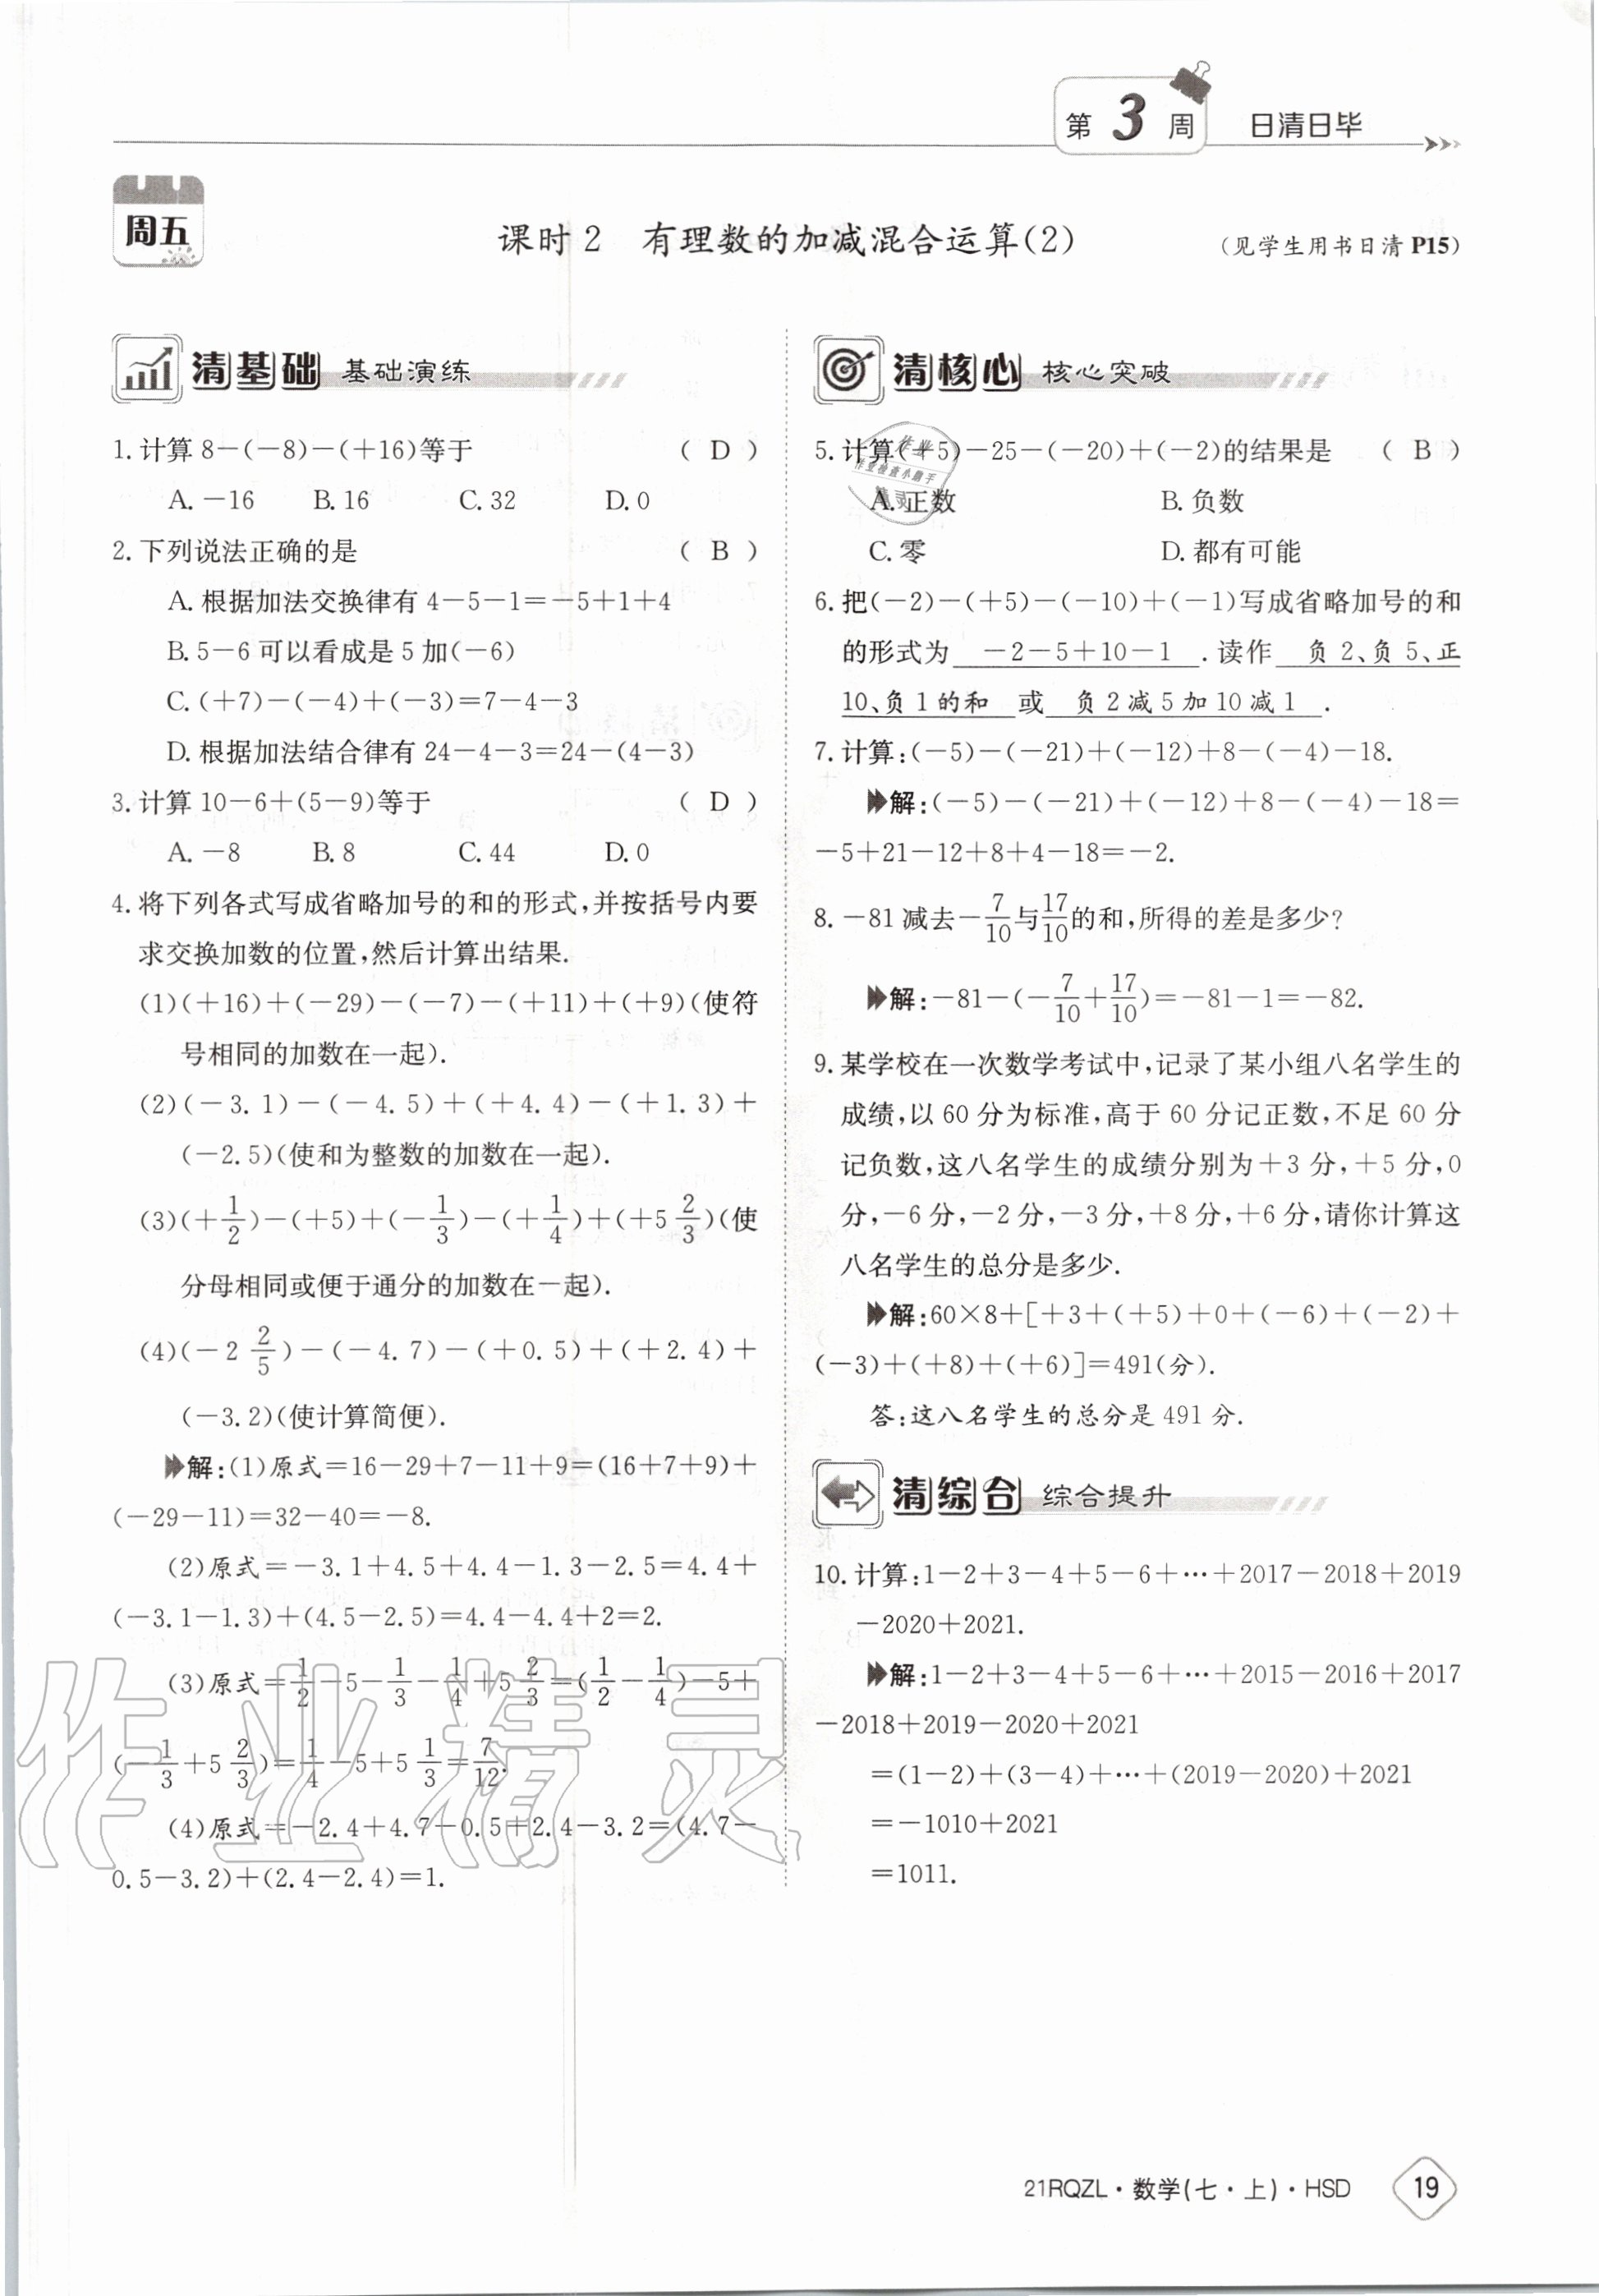 第3周 日清日毕
周五
课时2 有理数的加减混合运算(2) (见学生用书日清P15)
清基础 基础演练
1.计算8-(-8)-(+16)等于 ( D )
A.-16 B.16 C.32 D.0
2.下列说法正确的是 ( B )
A.根据加法交换律有4-5-1=-5+1+4
B.5-6可以看成是5加(-6)
C.(+7)-(-4)+(-3)=7-4-3
D.根据加法结合律有24-4-3=24-(4-3)
3.计算10-6+(5-9)等于 ( D )
A.-8 B.8 C.44 D.0
4.将下列各式写成省略加号的和的形式,并按括号内要
求交换加数的位置,然后计算出结果.
(1)(+16)+(-29)-(-7)-(+11)+(+9)(使符
号相同的加数在一起).
(2)(-3.1)-(-4.5)+(+4.4)-(+1.3)+
(-2.5)(使和为整数的加数在一起).
(3)(+1/2)-(+5)+(-1/3)-(+1/4)+(+5 2/3)(使
分母相同或便于通分的加数在一起).
(4)(-2 2/5)-(-4.7)-(+0.5)+(+2.4)+
(-3.2)(使计算简便).
解:(1)原式=16-29+7-11+9=(16+7+9)+
(-29-11)=32-40=-8.
(2)原式=-3.1+4.5+4.4-1.3-2.5=4.4+
(-3.1-1.3)+(4.5-2.5)=4.4-4.4+2=2.
(3)原式=1/2-5-1/3-1/4+5 2/3=(1/2-1/4)-5+
(-1/3+5 2/3)=1/4-5+5 1/3=7/12.
(4)原式=-2.4+4.7-0.5+2.4-3.2=(4.7-
0.5-3.2)+(2.4-2.4)=1.
清核心 核心突破
5.计算(+5)-25-(-20)+(-2)的结果是 ( B )
A.正数 B.负数
C.零 D.都有可能
6.把(-2)-(+5)-(-10)+(-1)写成省略加号的和
的形式为 -2-5+10-1 .读作 负2、负5、正
10、负1的和 或 负2减5加10减1 .
7.计算:(-5)-(-21)+(-12)+8-(-4)-18.
解:(-5)-(-21)+(-12)+8-(-4)-18=
-5+21-12+8+4-18=-2.
8.-81减去-7/10与17/10的和,所得的差是多少?
解:-81-(-7/10+17/10)=-81-1=-82.
9.某学校在一次数学考试中,记录了某小组八名学生的
成绩,以60分为标准,高于60分记正数,不足60分
记负数,这八名学生的成绩分别为+3分,+5分,0
分,-6分,-2分,-3分,+8分,+6分,请你计算这
八名学生的总分是多少.
解:60×8+[+3+(+5)+0+(-6)+(-2)+
(-3)+(+8)+(+6)]=491(分).
答:这八名学生的总分是491分.
清综合 综合提升
10.计算:1-2+3-4+5-6+…+2017-2018+2019
-2020+2021.
解:1-2+3-4+5-6+…+2015-2016+2017
-2018+2019-2020+2021
=(1-2)+(3-4)+…+(2019-2020)+2021
=-1010+2021
=1011.
作业精灵
作业
作业检查小助手
精灵
21RQZL·数学(七·上)·HSD 19